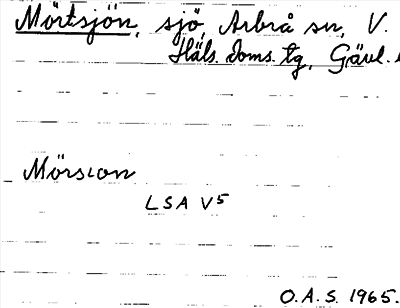 Mörtsjön, sjö, Arbrå sn, V.
Häls. doms. tg, Gävl.
Mörsıon
LSA V5
O.A.S. 1965.